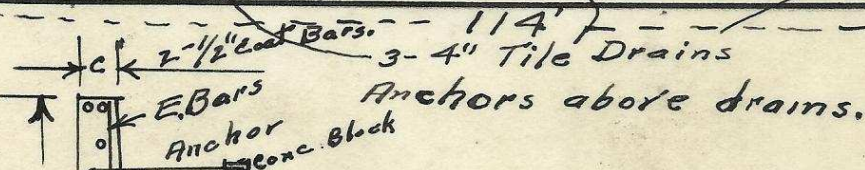 114'
2-1/2" Cont Bars.
3-4" Tile Drains
C
E.Bars
Anchors above drains.
Anchor
Conc. Block